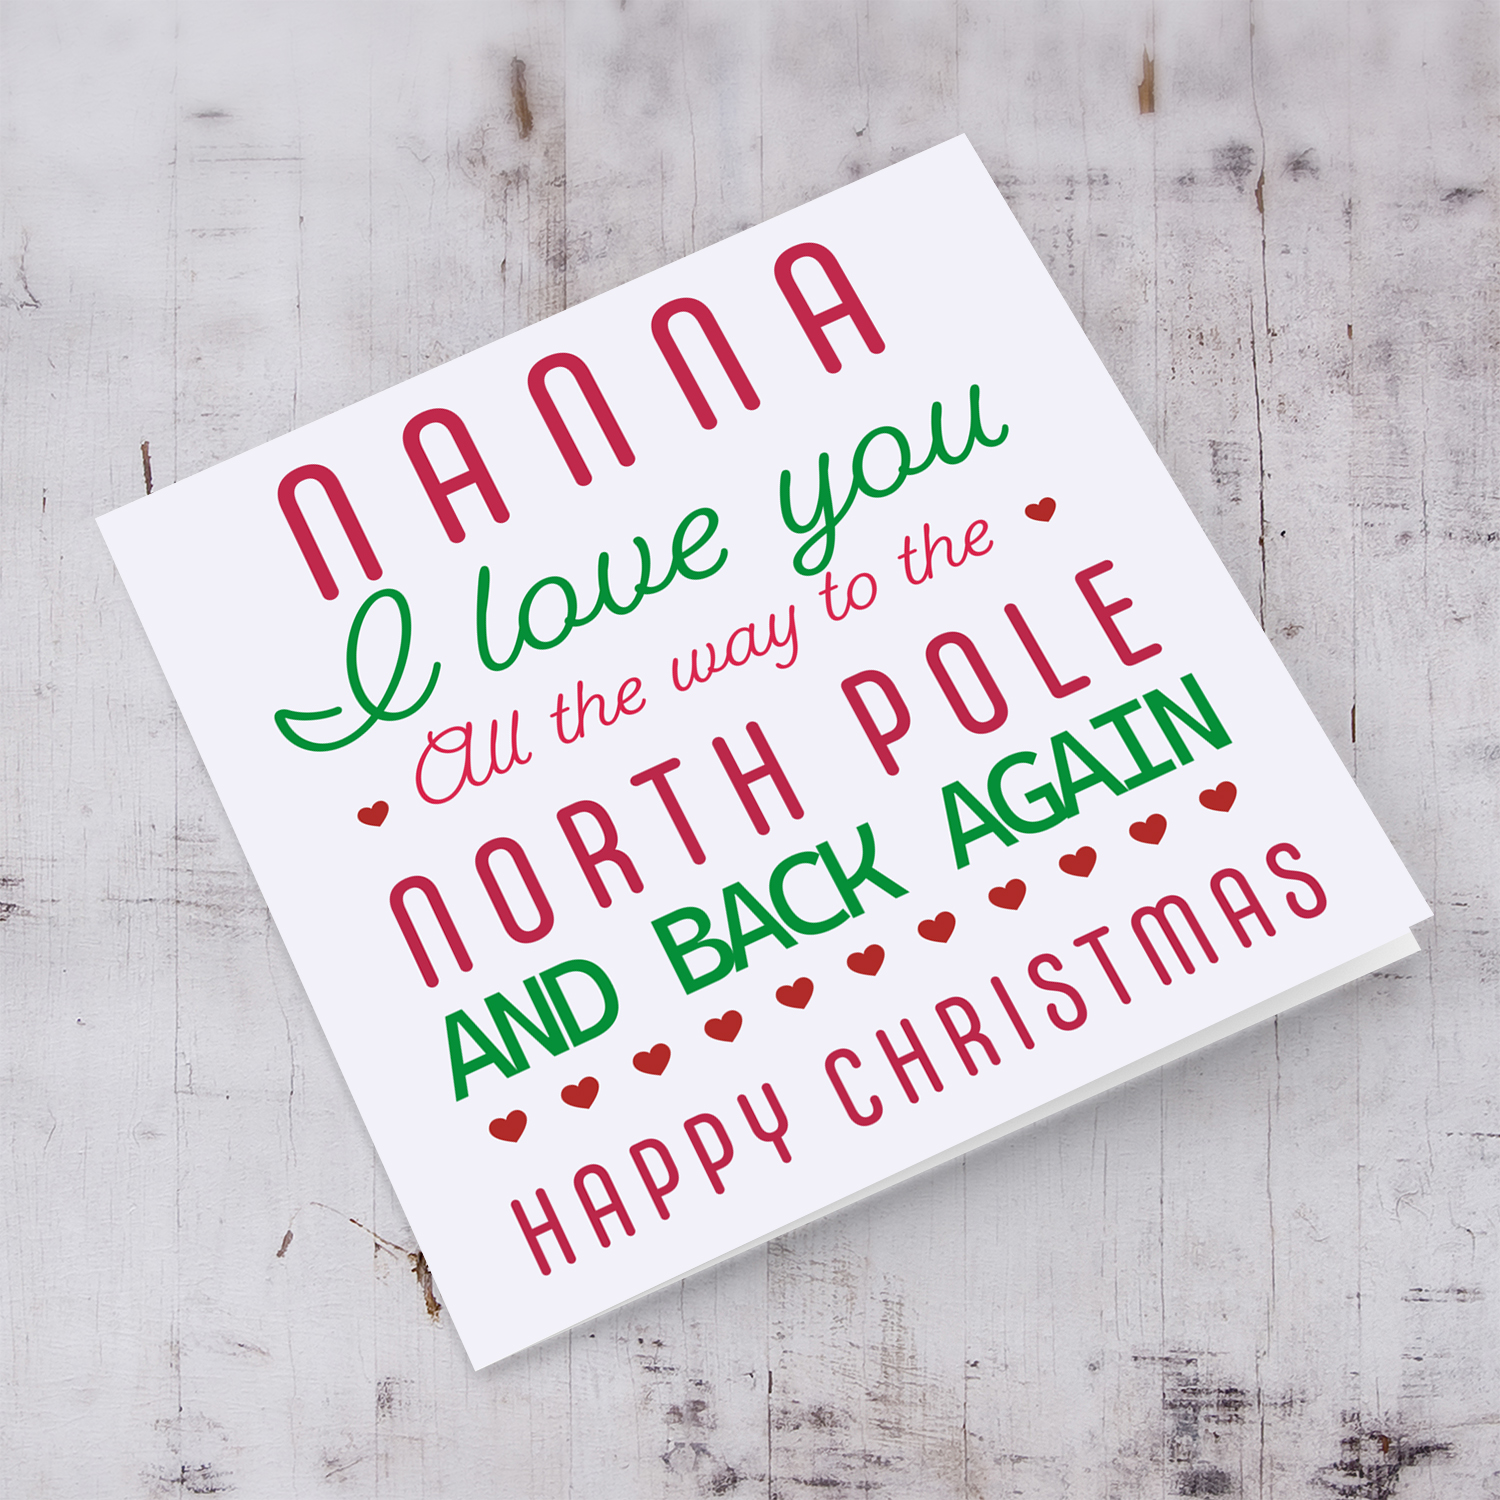 NANNA
I love you
All the way to the
NORTH POLE
AND BACK AGAIN
HAPPY CHRISTMAS